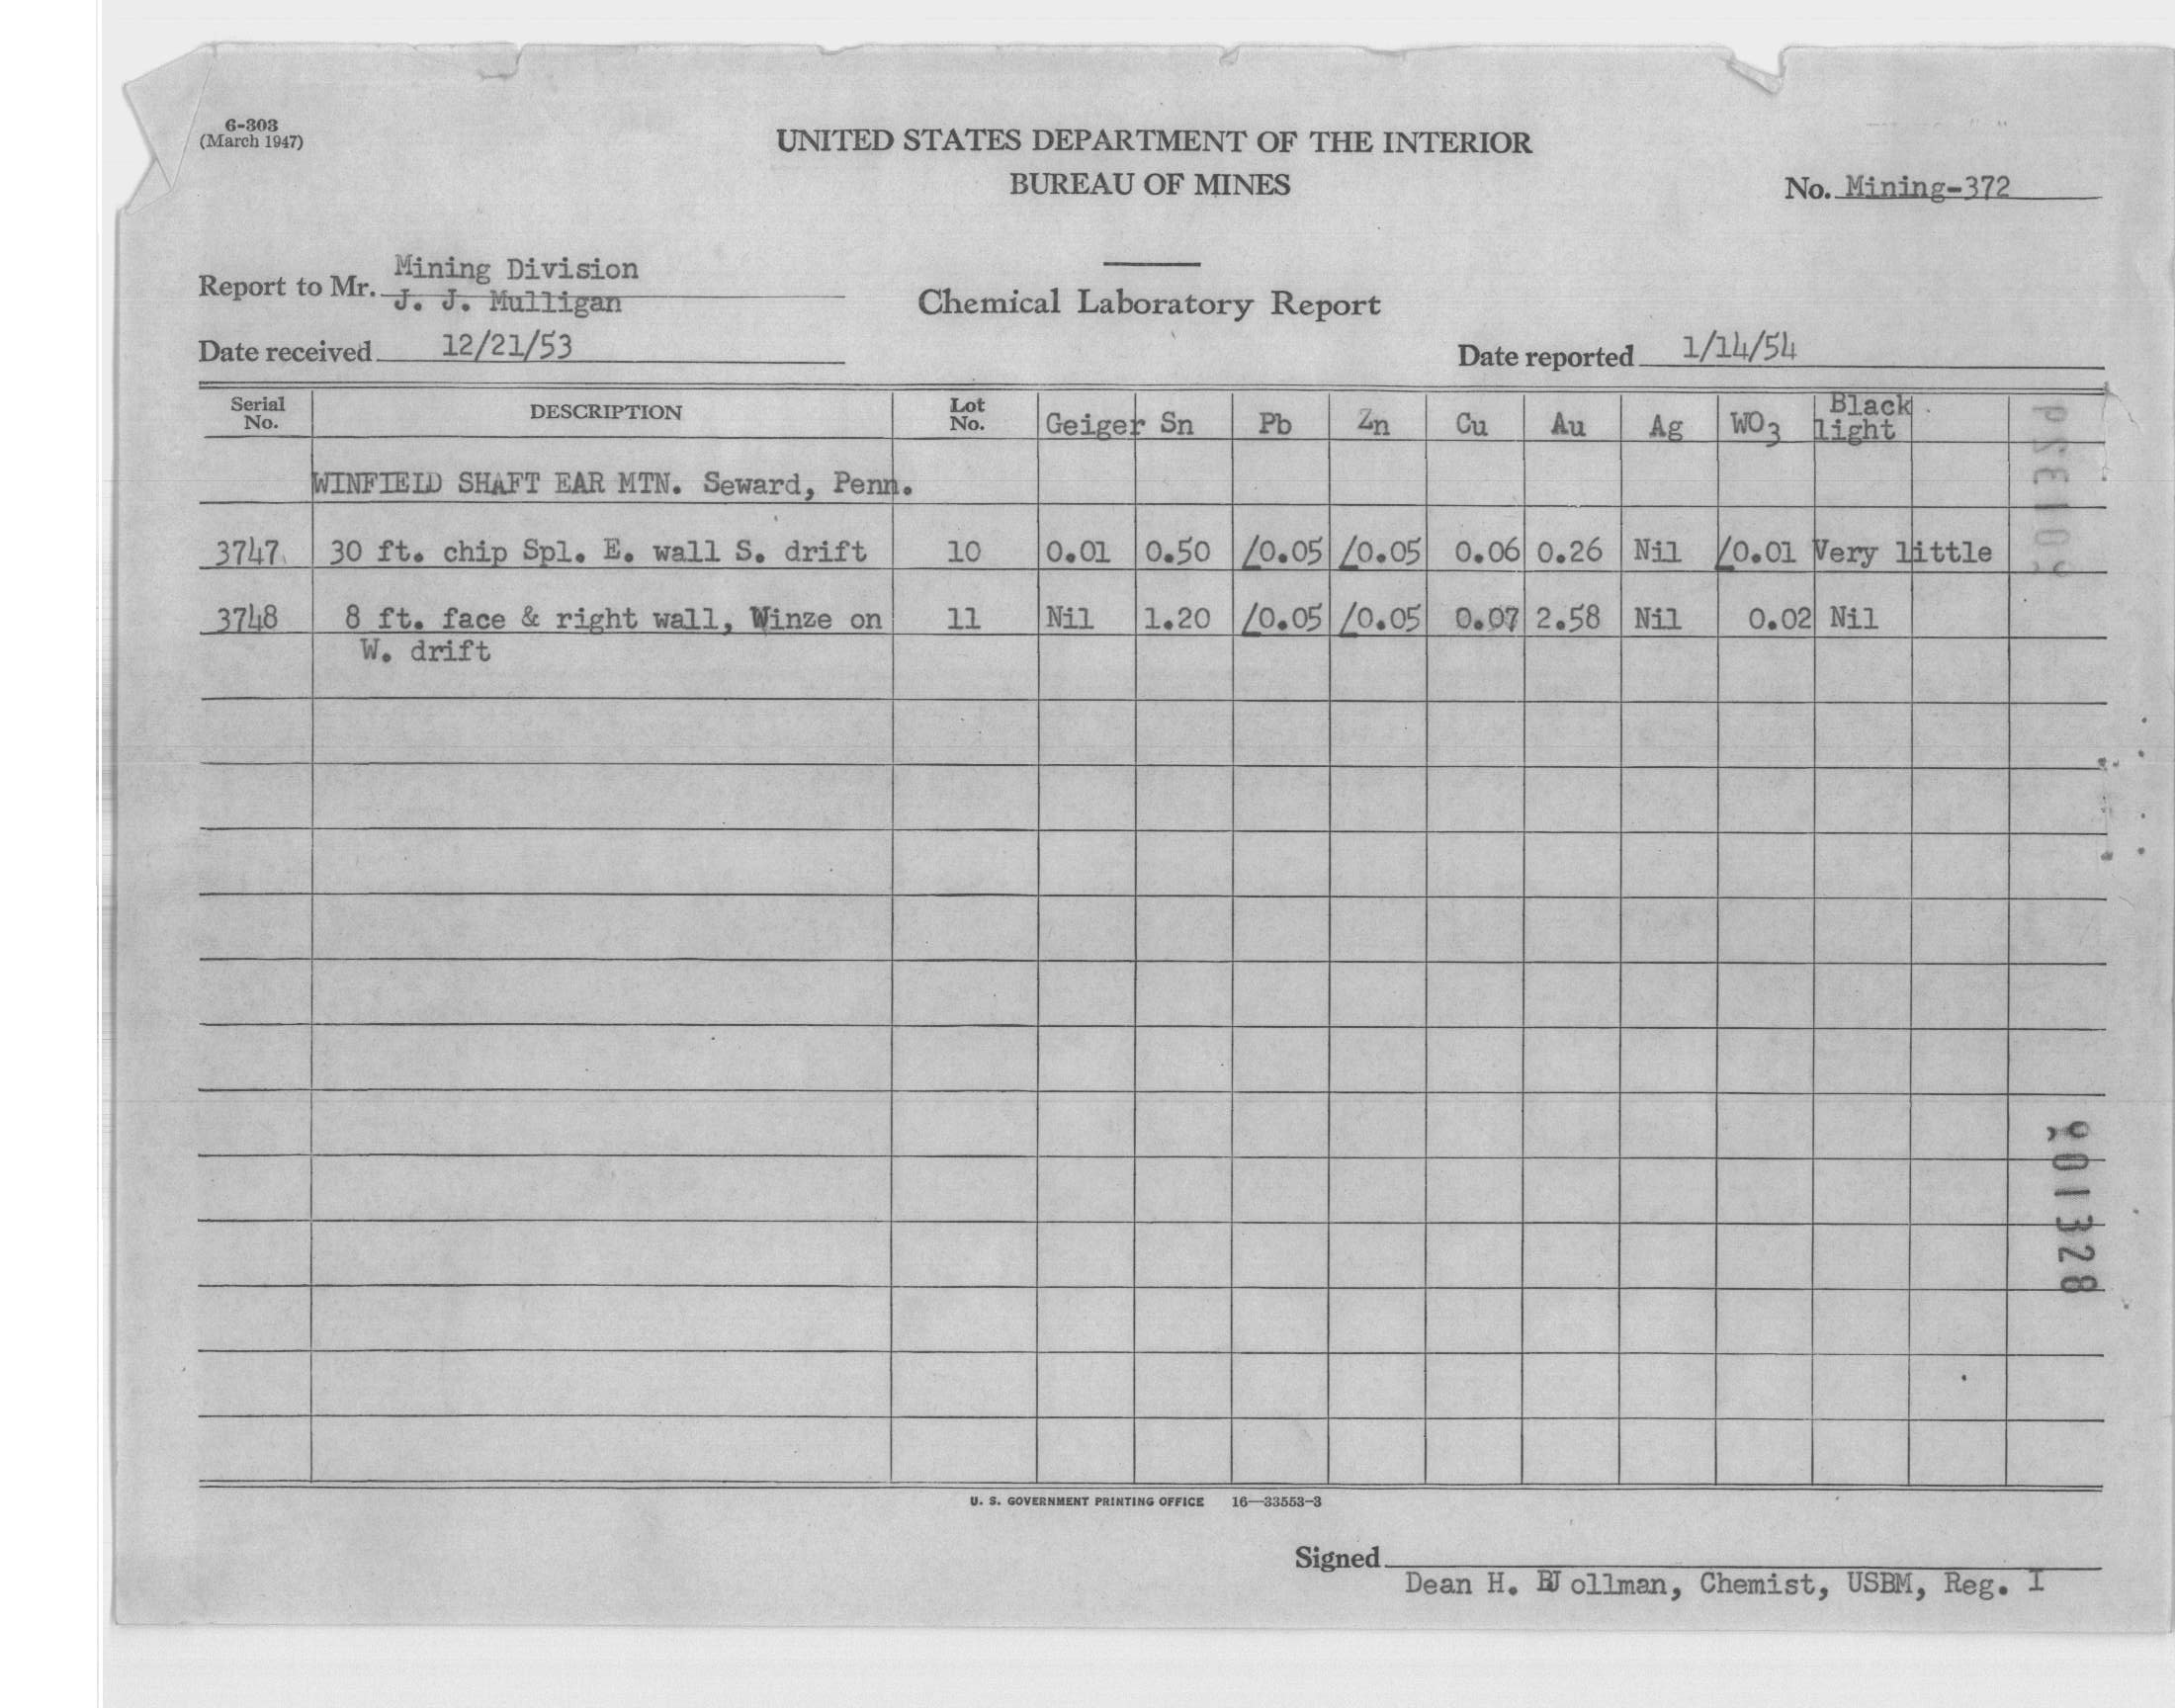 6-303
(March 1947)
UNITED STATES DEPARTMENT OF THE INTERIOR
BUREAU OF MINES
No. Mining-372
Report to Mr. Mining Division
J. J. Mulligan
Chemical Laboratory Report
Date received 12/21/53
Date reported 1/14/54
Serial No. DESCRIPTION Lot No. Geiger Sn Pb Zn Cu Au Ag WO3 Black light
WINFIELD SHAFT EAR MTN. Seward, Penn.
3747 30 ft. chip Spl. E. wall S. drift 10 0.01 0.50 /0.05 /0.05 0.06 0.26 Nil /0.01 Very little
3748 8 ft. face & right wall, Winze on 11 Nil 1.20 /0.05 /0.05 0.07 2.58 Nil 0.02 Nil
W. drift
U. S. GOVERNMENT PRINTING OFFICE 16—33553-3
Signed
Dean H. Bollman, Chemist, USBM, Reg. I